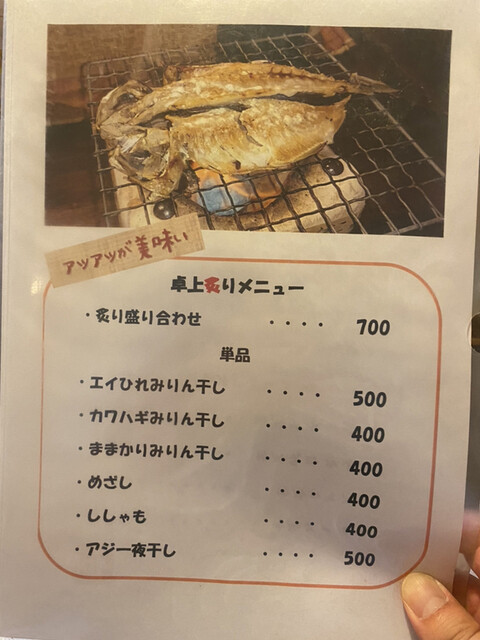 アツアツが美味い
卓上炙りメニュー
・炙り盛り合わせ ・・・・ 700
単品
・エイひれみりん干し ・・・・ 500
・カワハギみりん干し ・・・・ 400
・ままかりみりん干し ・・・・ 400
・めざし ・・・・ 400
・ししゃも ・・・・ 400
・アジ一夜干し ・・・・ 500